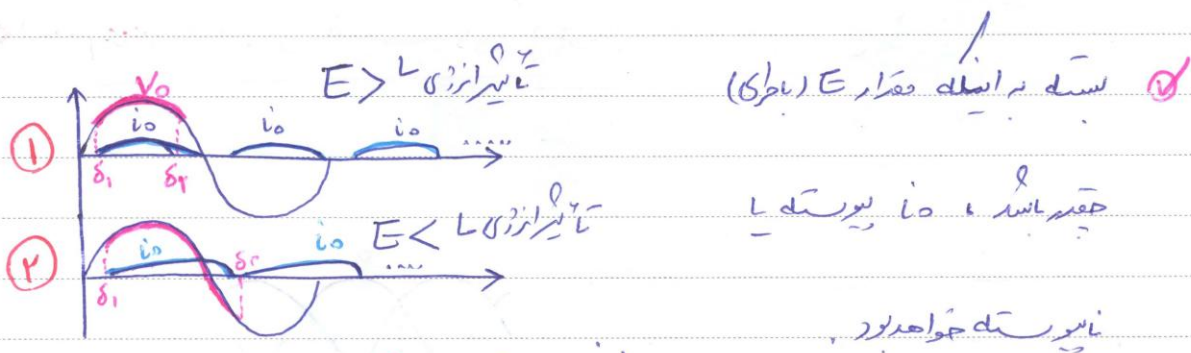 بسته به اینکه مقدار E (باطری)
چقدر باشد ، i₀ پیوسته یا
ناپیوسته خواهد بود.
E > تأثیر انرژی L
۱
V₀
i₀ i₀ i₀ .....
δ₁ δ₂
E < تأثیر انرژی L
۲
i₀ δ₂ i₀ ....
δ₁